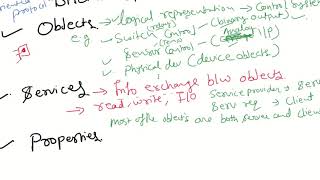 protocol
Objects → Logical representation → Control system
e.g → Switch Control - (binary output)
Sensor Control - (Analog I/P)
→ Physical dev - (device objects)
Services → Info exchange b/w objects
→ read, write, I/O Service provider → Se
Serv req → Client
Most of the objects are both server and clie
Properties